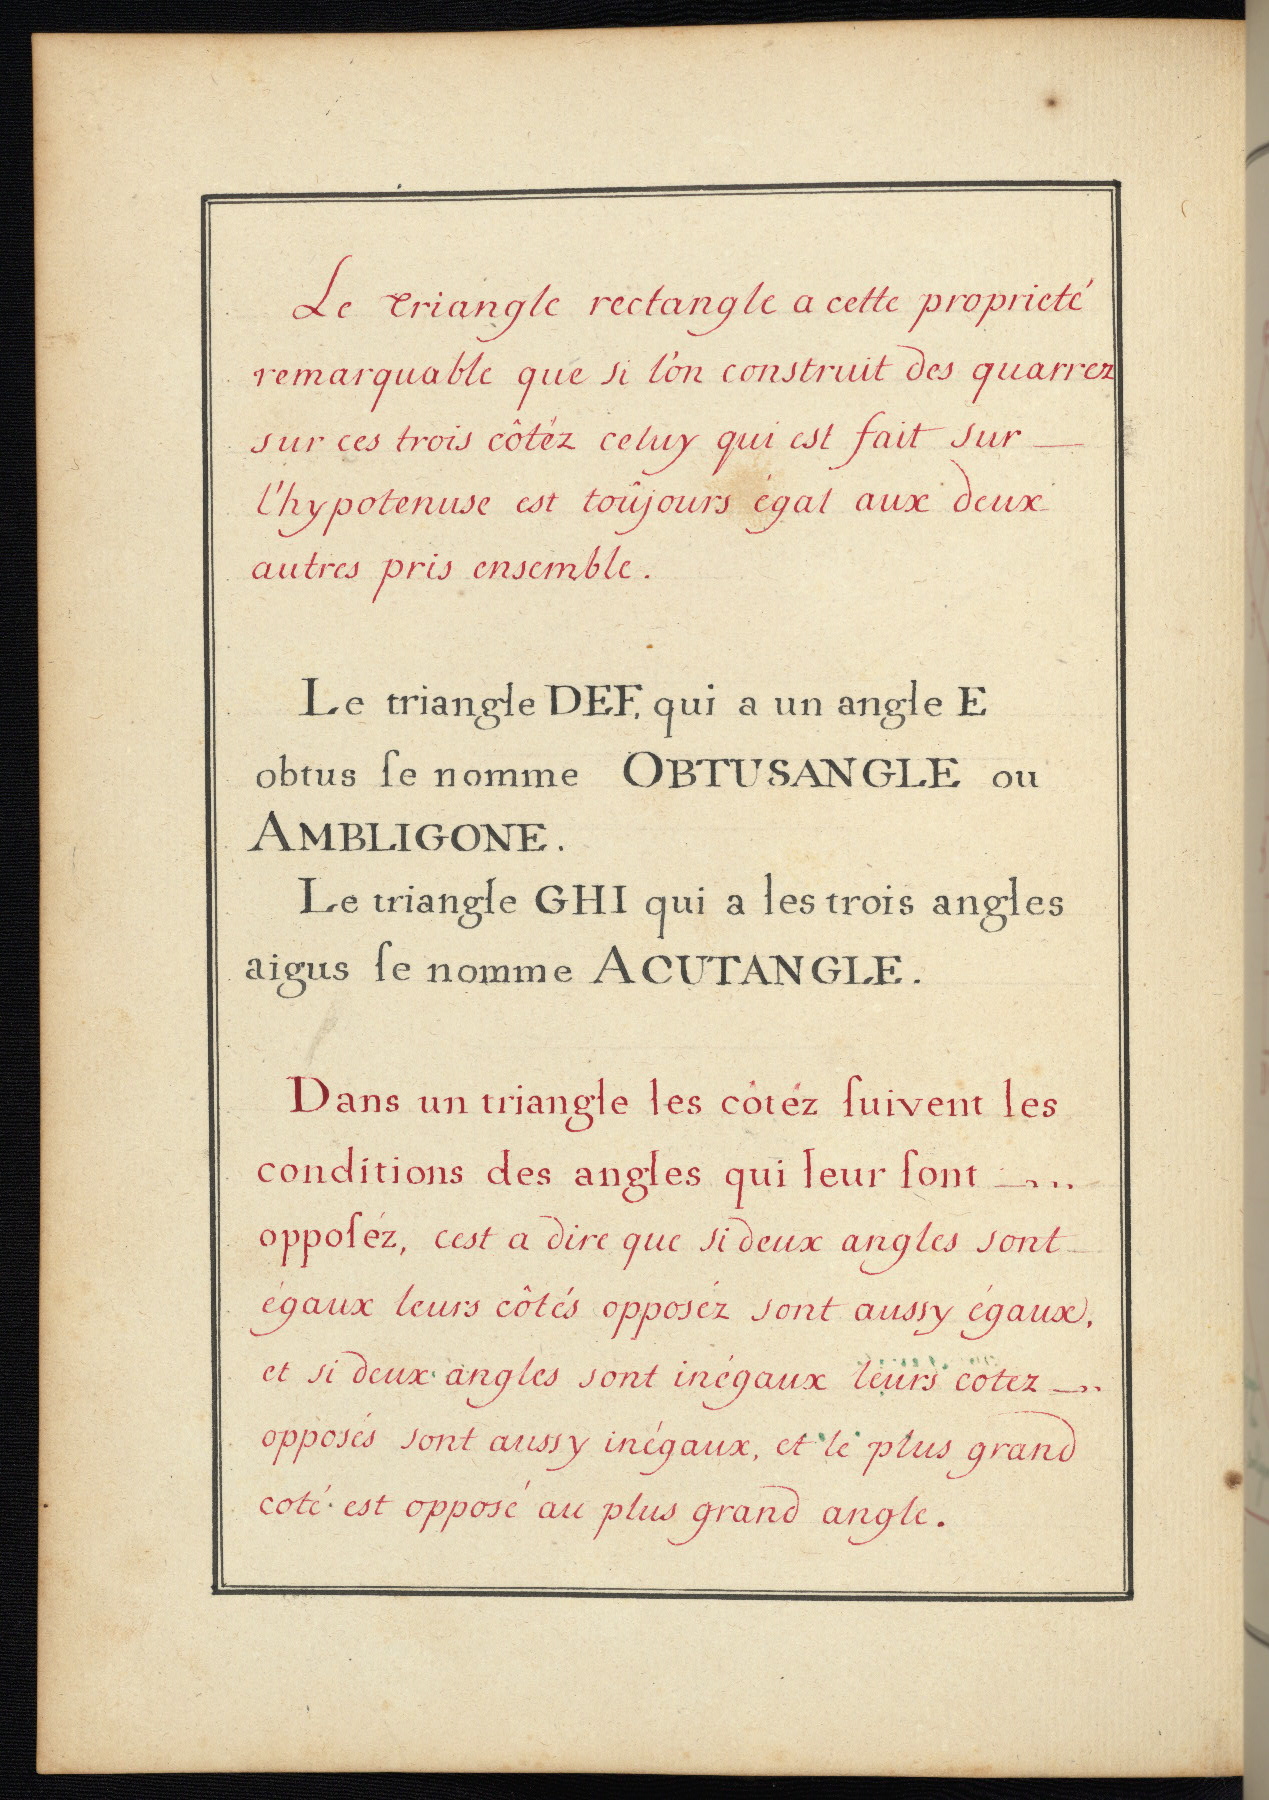 Le triangle rectangle a cette proprieté
remarquable que si l'on construit des quarrez
sur ces trois côtéz celuy qui est fait sur
l'hypotenuse est toûjours égal aux deux
autres pris ensemble.
Le triangle DEF, qui a un angle E
obtus ſe nomme OBTUSANGLE ou
AMBLIGONE.
Le triangle GHI qui a les trois angles
aigus ſe nomme ACUTANGLE.
Dans un triangle les côtéz ſuivent les
conditions des angles qui leur ſont
oppoſéz, cest a dire que si deux angles sont
égaux leurs côtés opposéz sont aussy égaux,
et si deux angles sont inégaux leurs cotez
opposés sont aussy inégaux, et le plus grand
coté est opposé au plus grand angle.